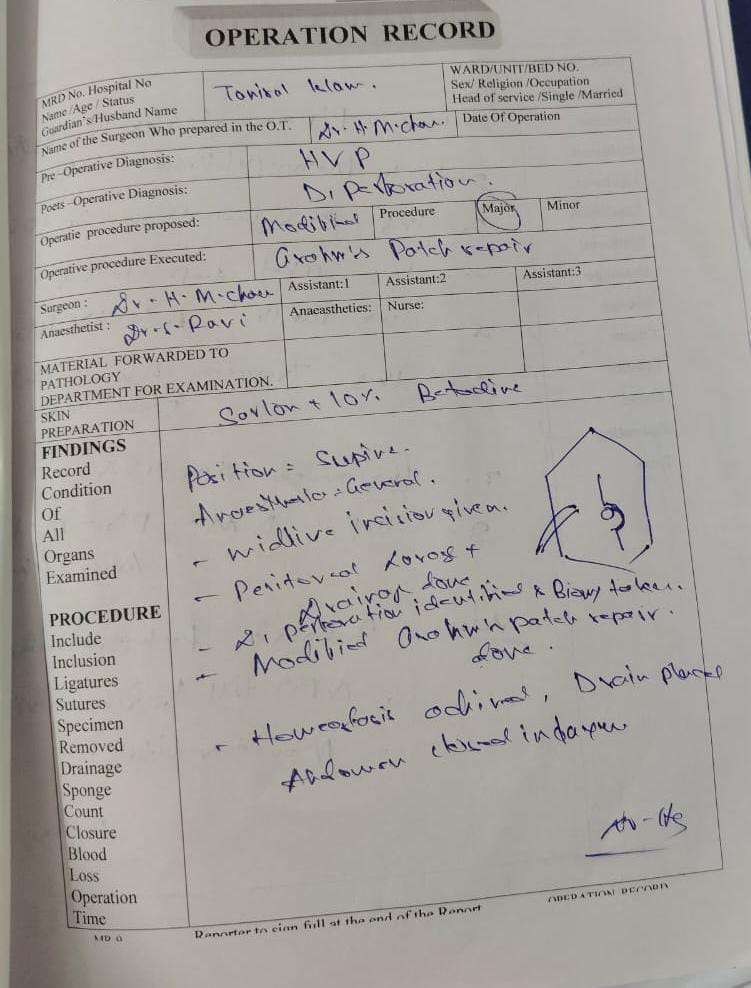 OPERATION RECORD
MRD No. Hospital No
Name /Age / Status
Guardian's/Husband Name
WARD/UNIT/BED NO.
Sex/ Religion /Occupation
Head of service /Single /Married
Name of the Surgeon Who prepared in the O.T.
Dr. H M.
Date Of Operation
Pre -Operative Diagnosis:
HVP
Poets -Operative Diagnosis:
D1 Perforation.
Operatie procedure proposed:
Modified
Procedure
Major
Minor
Operative procedure Executed:
Patch repair
Surgeon :
Dr. H. M.
Assistant:1
Assistant:2
Assistant:3
Anaesthetist :
Dr. S. Ravi
Anaeasthetics:
Nurse:
MATERIAL FORWARDED TO
PATHOLOGY
DEPARTMENT FOR EXAMINATION.
SKIN
PREPARATION
Savlon + 10%. Betadine
FINDINGS
Record
Condition
Of
All
Organs
Examined
Position = Supine.
General.
- midline incision given.
- Peritoneal +
Drainage done
- D1 perforation identified & Biopsy taken.
- Modified patch repair.
done.
- achieved, Drain placed
Abdomen closed in
PROCEDURE
Include
Inclusion
Ligatures
Sutures
Specimen
Removed
Drainage
Sponge
Count
Closure
Blood
Loss
Operation
Time
Reporter to sign full at the end of the Report
OPERATION RECORD